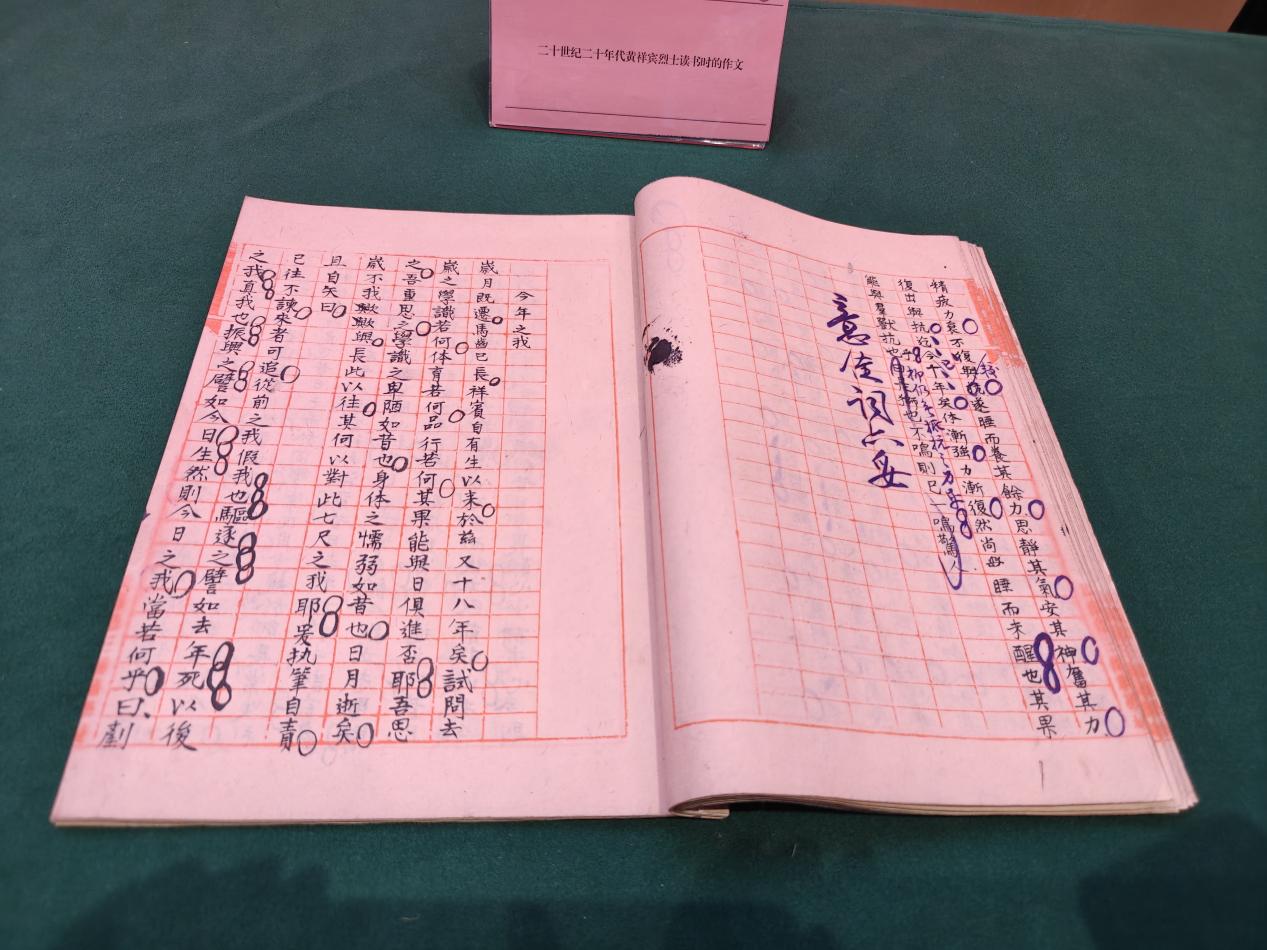 二十世纪二十年代黄祥宾烈士读书时的作文
精疲力衰不復與抗遂睡而養其餘力思靜其氣安其神奮其力
復出與抗迄今十年矣体漸強力漸復然尚毋睡而未醒也其果
能與羣獸抗也不鳴則已一鳴驚人
意佳詞亦妥
今年之我
歲月既遷馬齒已長祥賓自有生以来於茲又十八年矣試問去
歲之學識若何体育若何品行若何其果能與日俱進否耶吾思
之吾重思之學識之卑陋如昔也身体之懦弱如昔也日月逝矣
歲不我歟歟與長此以往其何以對此七尺之我耶爰执筆自責
且自矢曰
已往不諫来者可追從前之我假我也驅逐之譬如去年死以後
之我真我也振興之譬如今日生然則今日之我當若何乎曰、劃